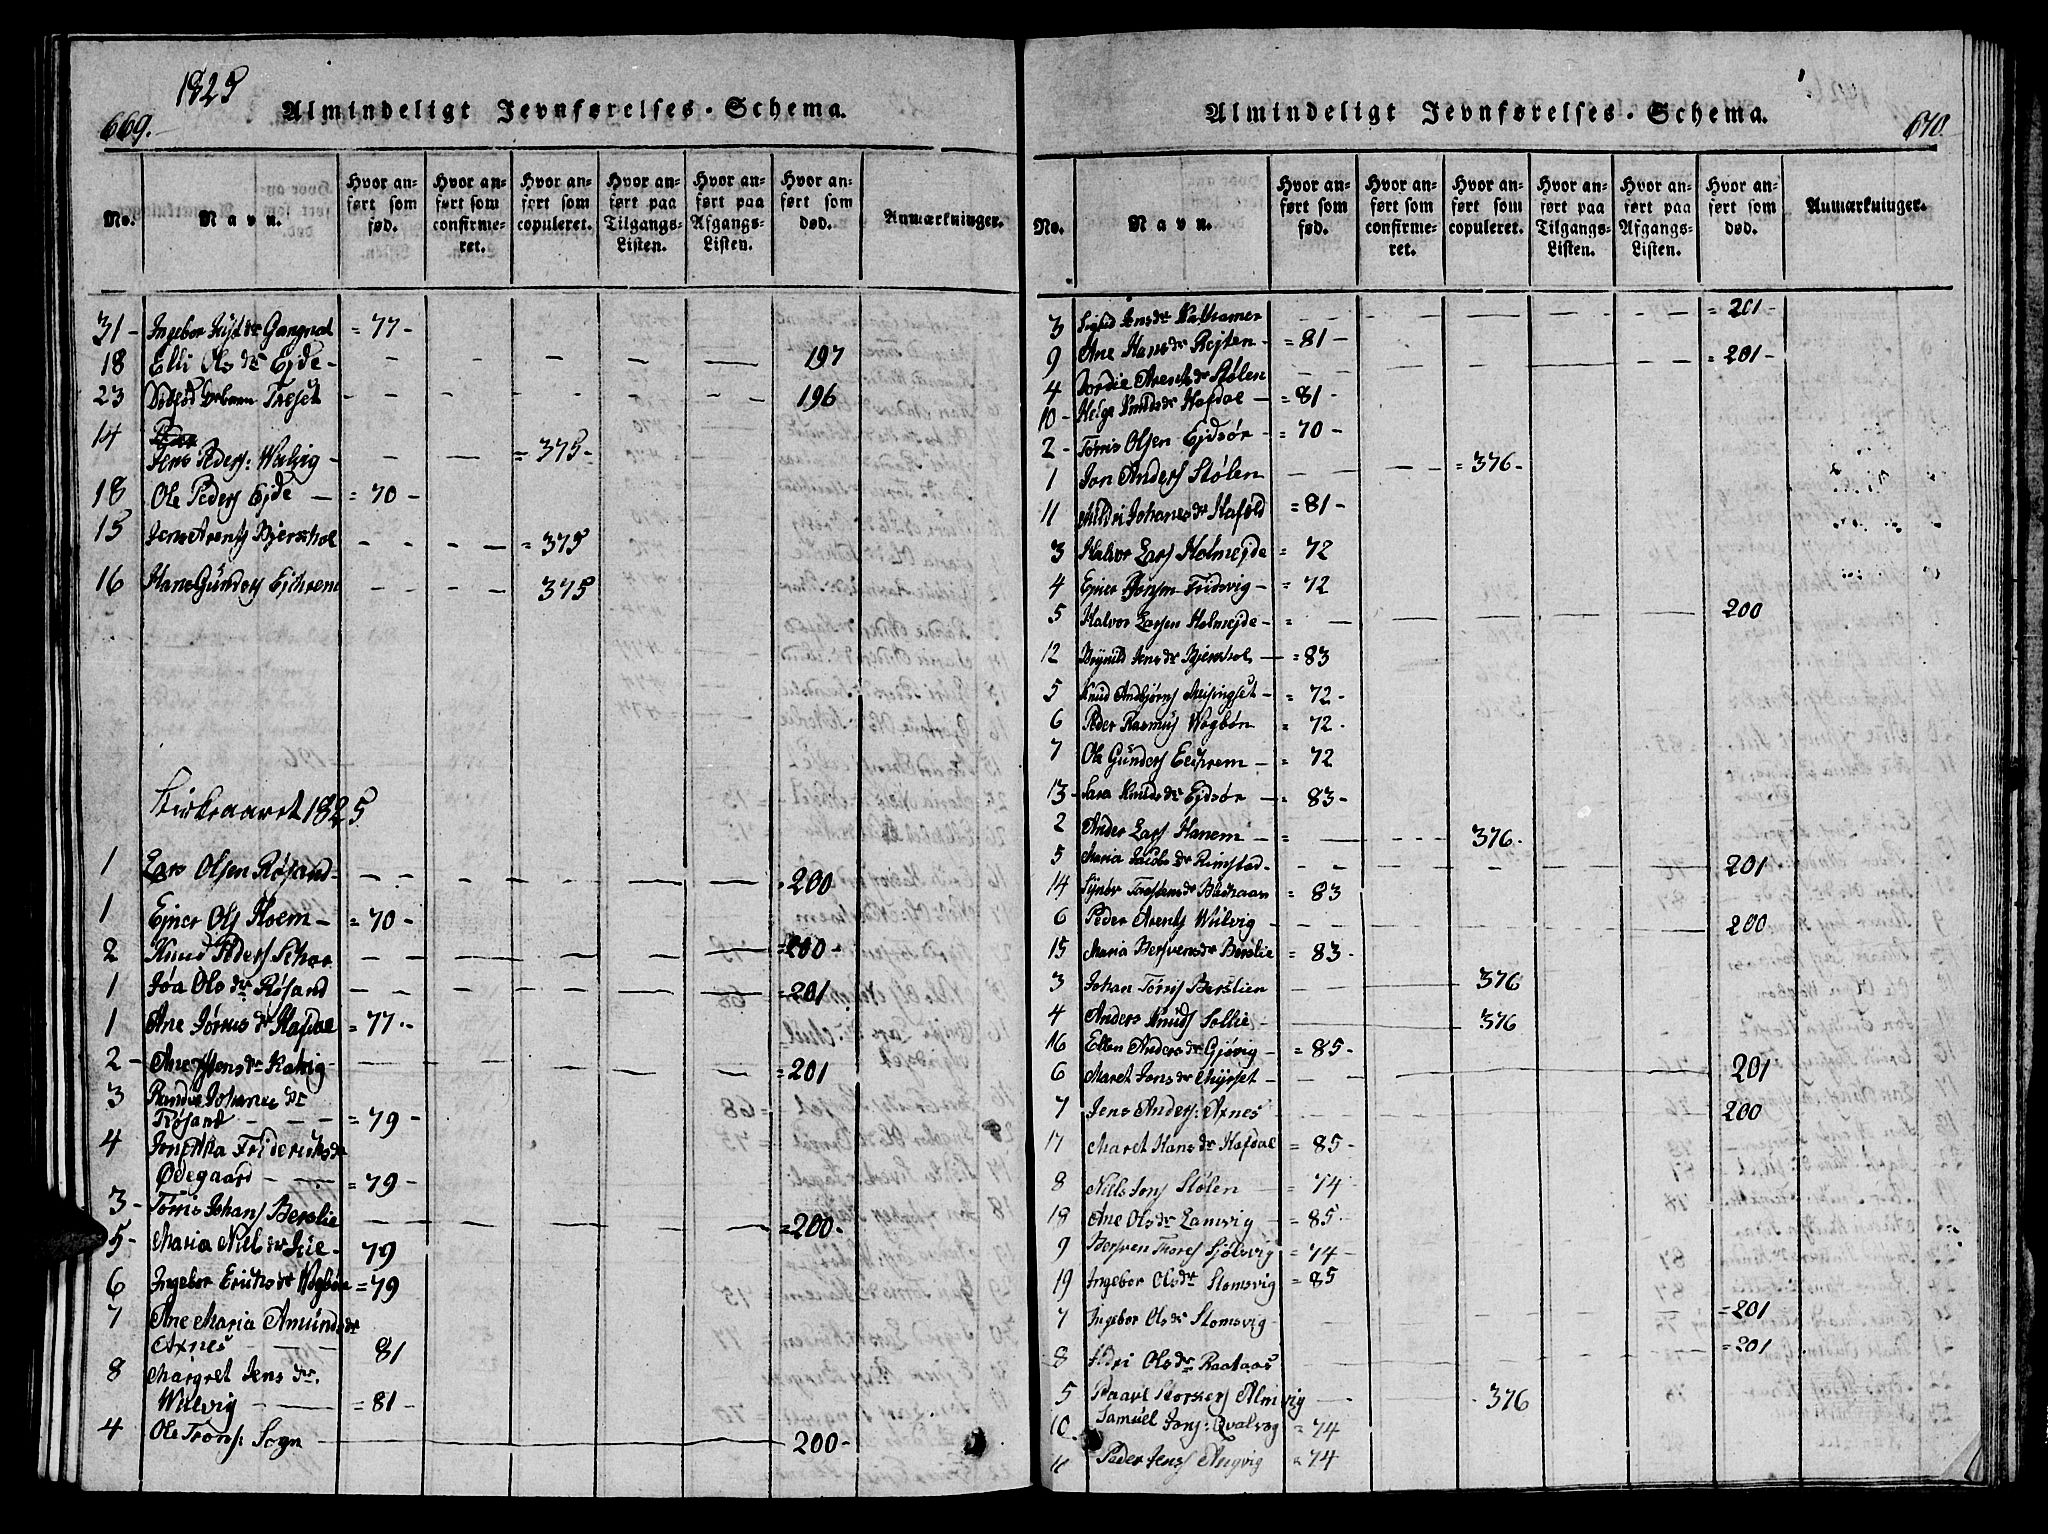 1825
669.
Almindeligt Jevnførelses-Schema.
No.
Navn.
Hvor anført som fød.
Hvor anført som confirmeret.
Hvor anført som copuleret.
Hvor anført paa Tilgangs-Listen.
Hvor anført paa Afgangs-Listen.
Hvor anført som død.
Anmærkninger.
31 - Ingebor = 77 -
18 Elli Ols dr Ejde - 197
23 Treset 196
14
Jens Peders: = 375 -
18 Ole Peders Ejde = 70 -
15 Jens Arents Bjerkhol = 375
16 Hans Gunders 375
Kirkeaaret 1825
1 Lars Olsen Røsand 200
1 Ejner Ols Hoem = 70 -
2 Knud Peders = 200 -
1 Ols dr Røsand = 201
1 Ane dr Hafdal = 77 -
2 - Ane = 201
3 Johannes dr
Røsand = 79 -
4 Friderichs dr
Ødegaard = 79 -
3 - Tørris Johans Berslie = 200 -
5 - Maria Niels dr 79
6 Ingebor Erichs dr Vogbøe = 79
7 Ane Maria Amunds dr
Axnes 81
8 Margret Jens dr.
Wulvig = 81 -
4 Ole Trons: Sogn 200 -
Almindeligt Jevnførelses-Schema.
670
No.
Navn.
Hvor anført som fød.
Hvor anført som confirmeret.
Hvor anført som copuleret.
Hvor anført paa Tilgangs-Listen.
Hvor anført paa Afgangs-Listen.
Hvor anført som død.
Anmærkninger.
3 Sigrid Jens dr = 201 -
9 Ane Hans dr Rejten = 81 -
4 Arents dr Stølen = 201 -
10 - Helge Knuds dr Hafdal = 81 -
2 - Tørris Olsen Ejdsør = 70 -
1 Jon Anders Stølen = 376 -
11 Mildri Johanes dr Hafold = 81 -
3 Halvor Lars Holmejde = 72
4 Ejner Fredsvig = 72
5 Halvor Larsen Holmejde = 200
12 Brynild Jens dr Bjerkhol = 83
5 Knud Andbjørns Meisingset = 72 -
6 Peder Rasmus Wogbøn = 72 -
7 Ole Gunders Eechrem = 72
13 - Sara Knuds dr Ejdsør = 83 -
2 Ander Lars Hanem = 376 -
5 Maria Jacobs dr Rimstad 201
14 dr = 83
6 Peder Arents Wulvig 200
15 Maria Bersvens dr Berslie = 83 -
3 Johan Tørris Berslien 376
4 Anders Knuds Sollie 376
16 Ellen Anders dr Gjøvig = 85 -
6 Maret Jons dr Myrset 201
7 Jens Anders: Axnes 200
17 Maret Hans dr Hafdal = 85 -
8 Niels Jons Stølen = 74 -
18 Ane Ols dr Lamvig = 85 -
9 Bersven Thores Sjølsvig = 74 -
19 Ingebor Ols dr Stomsvig = 85
7 Ingebor Ols dr Stomsvig = 201
8 Ols dr Raakaas = 201
5 Paavel Storkers Almvig 376
10. Samuel Jons: Qvalvog = 74
11 Peder Jens Angvig = 74